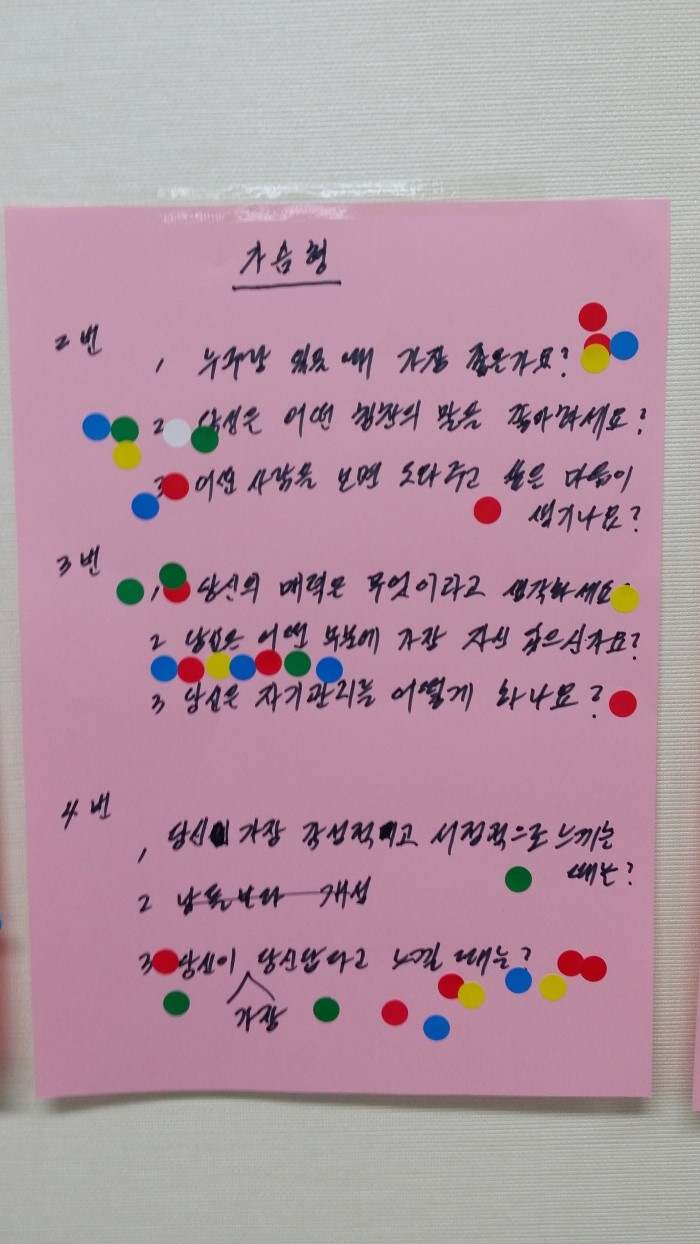 가슴형
2번
1 누구랑 있을 때 가장 좋은가요?
2 당신은 어떤 칭찬의 말을 좋아하세요?
3 어떤 사람을 보면 도와주고 싶은 마음이
생기나요?
3번
1 당신의 매력은 무엇이라고 생각하세요?
2 당신은 어떤 부분에 가장 자신 있으신가요?
3 당신은 자기관리를 어떻게 하나요?
4번
1 당신이 가장 감성적이고 서정적으로 느끼는
때는?
2 남들보다 개성
3 당신이 당신답다고 느낄 때는?
가장